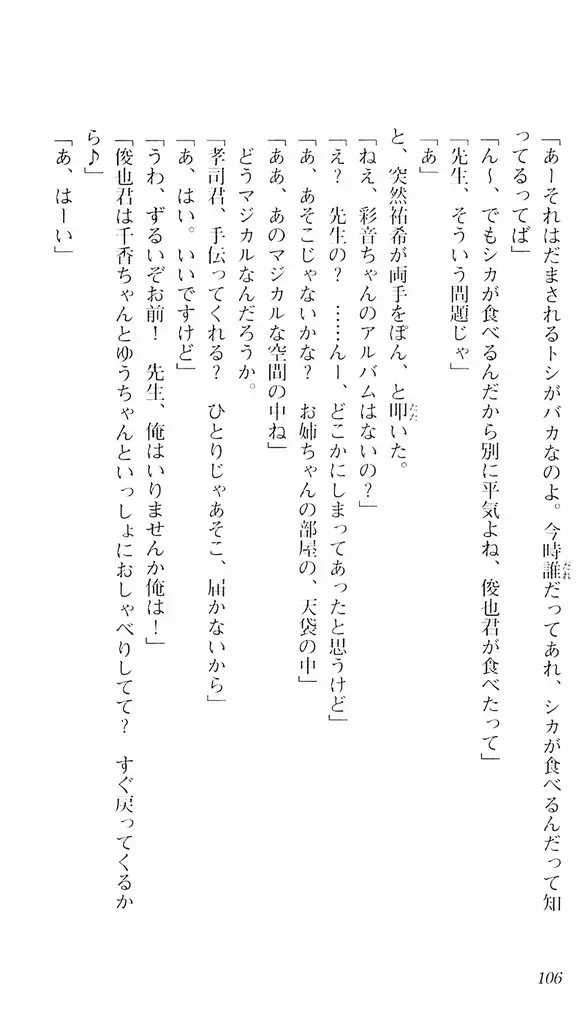 「あーそれはだまされるトシがバカなのよ。今時誰だってあれ、シカが食べるんだって知
ってるってば」
「ん～、でもシカが食べるんだから別に平気よね、俊也君が食べたって」
「先生、そういう問題じゃ」
「あ」
と、突然祐希が両手をぽん、と叩いた。
「ねえ、彩音ちゃんのアルバムはないの？」
「え？　先生の？　……んー、どこかにしまってあったと思うけど」
「あ、あそこじゃないかな？　お姉ちゃんの部屋の、天袋の中」
「ああ、あのマジカルな空間の中ね」
どうマジカルなんだろうか。
「孝司君、手伝ってくれる？　ひとりじゃあそこ、届かないから」
「あ、はい。いいですけど」
「うわ、ずるいぞお前！　先生、俺はいりませんか俺は！」
「俊也君は千香ちゃんとゆうちゃんといっしょにおしゃべりしてて？　すぐ戻ってくるか
ら♪」
「あ、はーい」
106